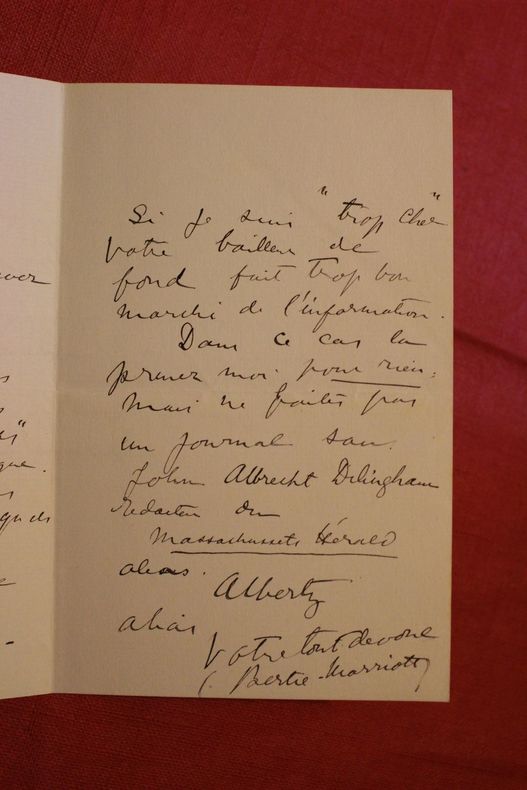 Si je suis "trop cher"
votre bailleur de
fond fait trop bon
marché de l'information.
Dans ce cas la
prenez moi pour rien;
mais ne faites pas
un journal sans
John Albrecht Dilingham
redacteur du
Massachussets Herald
alias.
Albertz
alias
Votre tout devoué
Bertie-Marriott